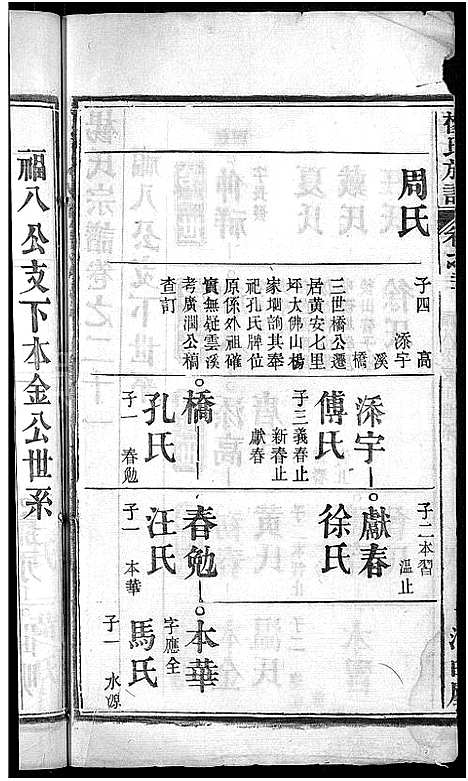 周氏
子四
高
溪
添宇
橋
三世橋公遷
居黃安七里
坪大佛山楊
家堋詢其奉
祀孔氏牌位
原係外祖確
實無疑雲溪
考廣潤公槁
查訂
添宇
傅氏
子三義春止
新春止
獻春
橋
孔氏
子一
春勉
子二本習
溫止
獻春
徐氏
春勉
汪氏
子一
本華
本華
字應全
馬氏
子一
水源
福八公支下本金公世系